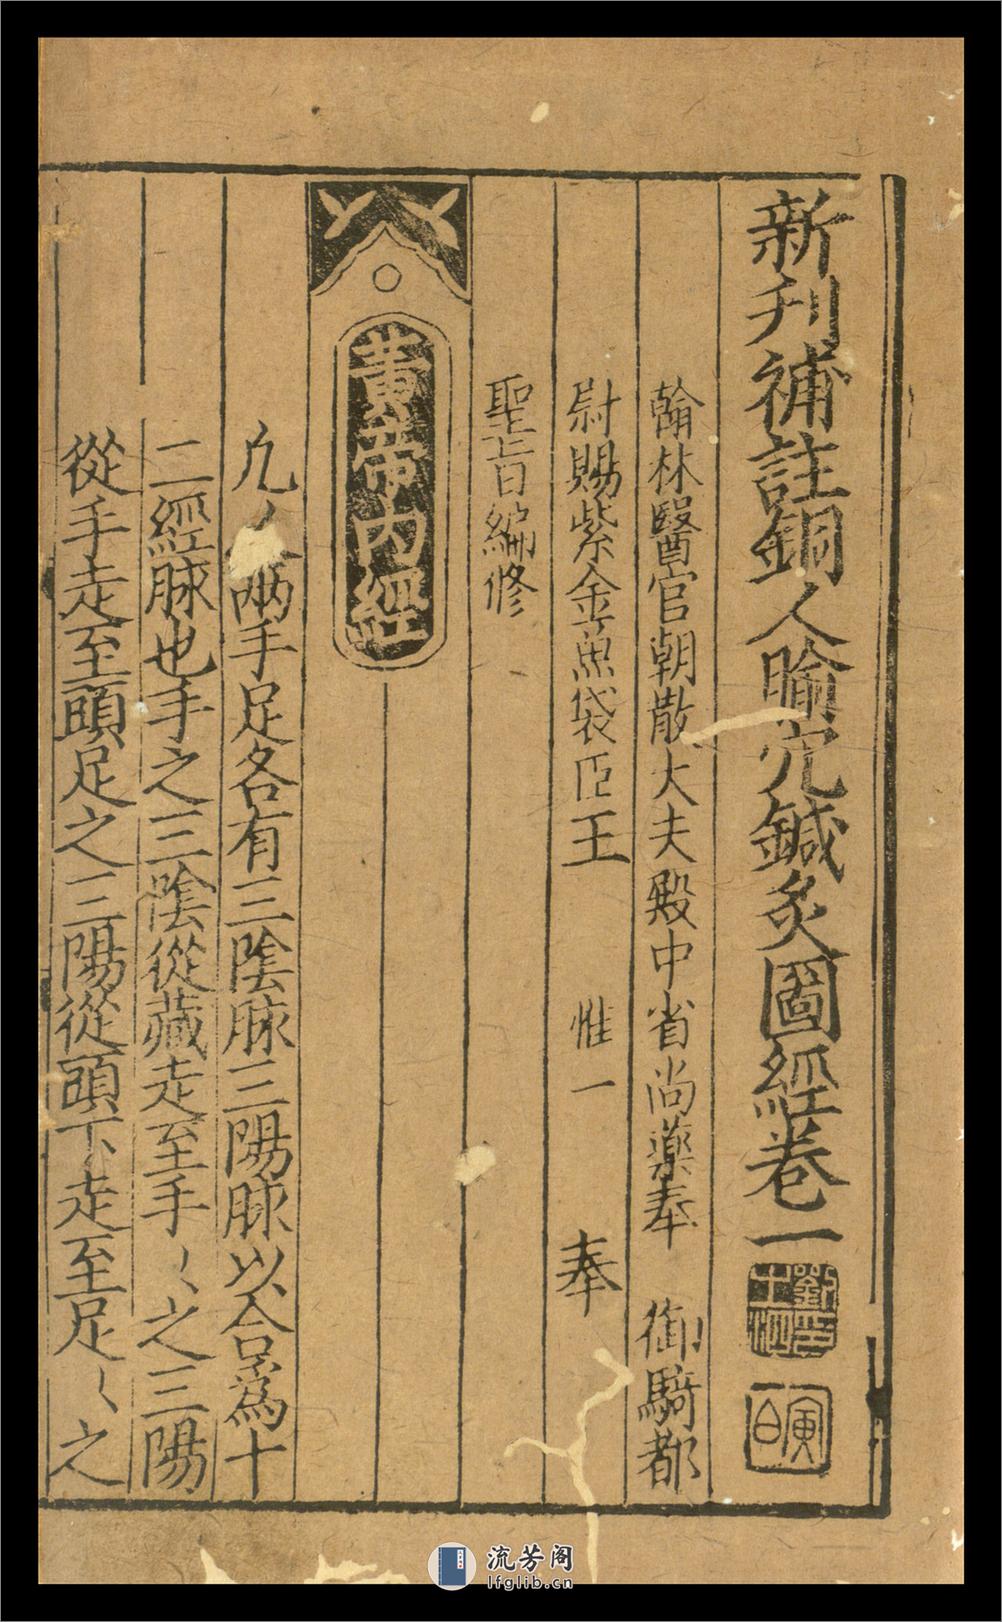 新刋補註銅人腧穴鍼灸圖經卷一
翰林醫官朝散大夫殿中省尚藥奉 御騎都
尉賜紫金魚袋臣王 惟一 奉
聖旨編修
黃帝內經
凡人兩手足各有三陰脉三陽脉以合爲十
二經脉也手之三陰從藏走至手〻之三陽
從手走至頭足之三陽從頭下走至足〻之
流芳阁
lfglib.cn